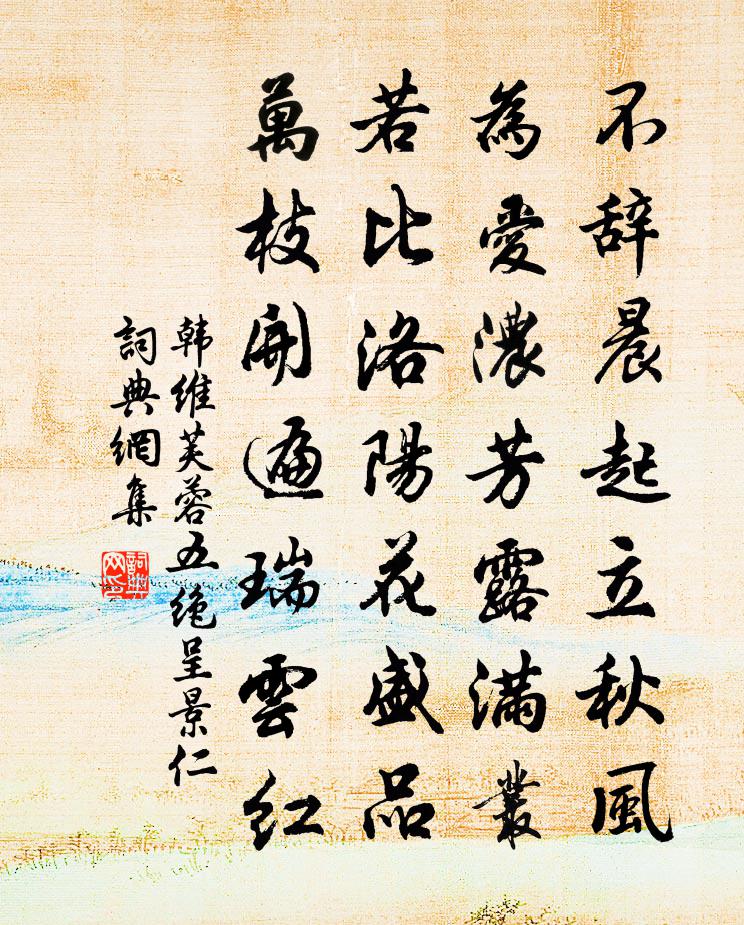 不辞晨起立秋風
為愛濃芳露滿叢
若比洛陽花盛品
萬枝開遍瑞雲紅
韩维芙蓉五绝呈景仁
詞典網集